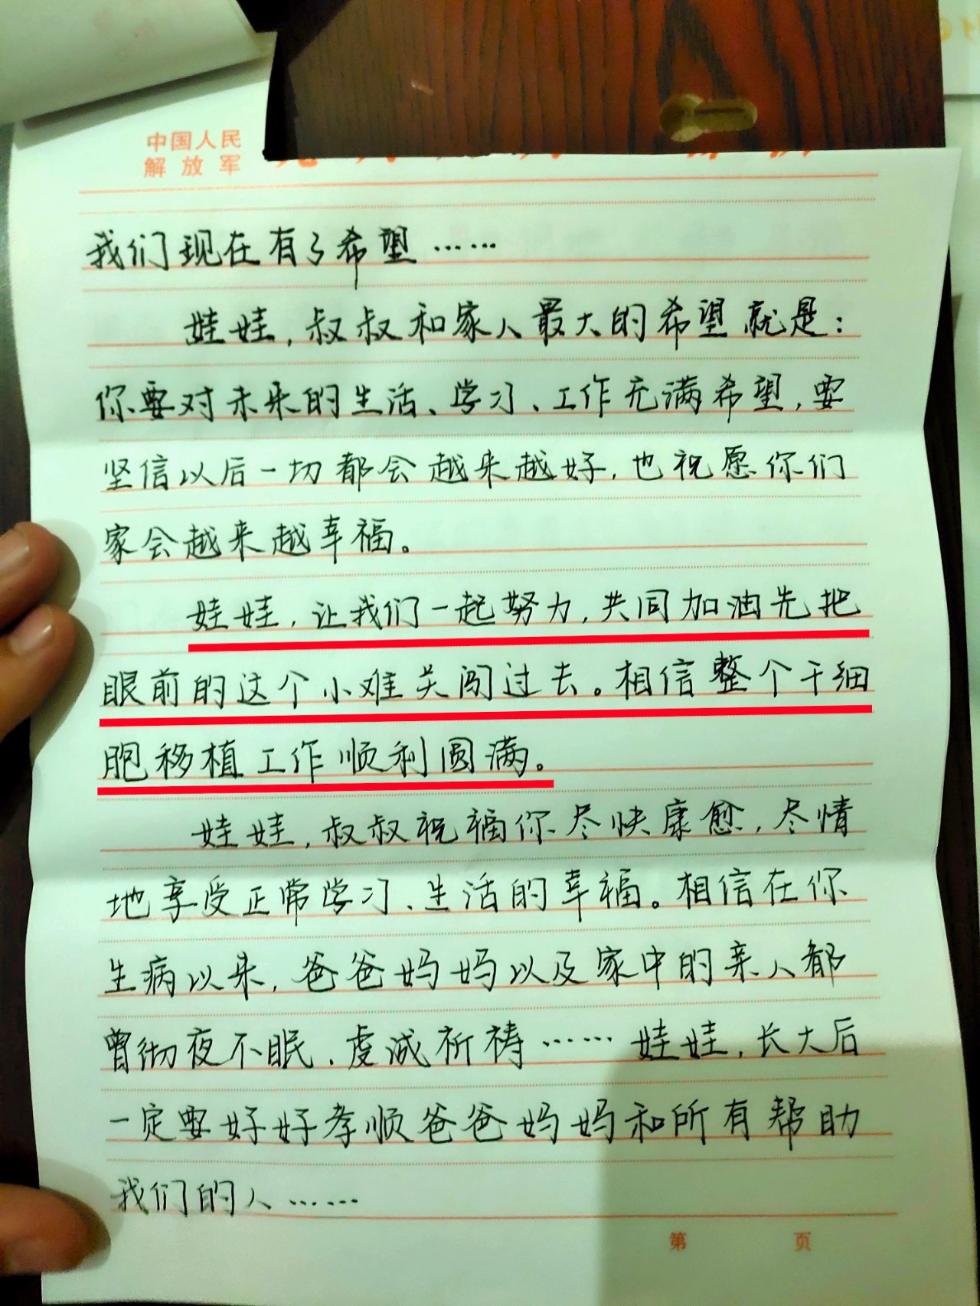 中国人民
解放军
我们现在有了希望……
娃娃，叔叔和家人最大的希望就是：
你要对未来的生活、学习、工作充满希望，要
坚信以后一切都会越来越好，也祝愿你们
家会越来越幸福。
娃娃，让我们一起努力，共同加油先把
眼前的这个小难关闯过去。相信整个干细
胞移植工作顺利圆满。
娃娃，叔叔祝福你尽快康愈，尽情
地享受正常学习、生活的幸福。相信在你
生病以来，爸爸妈妈以及家中的亲人都
曾彻夜不眠、虔诚祈祷……娃娃，长大后
一定要好好孝顺爸爸妈妈和所有帮助
我们的人……
第 页